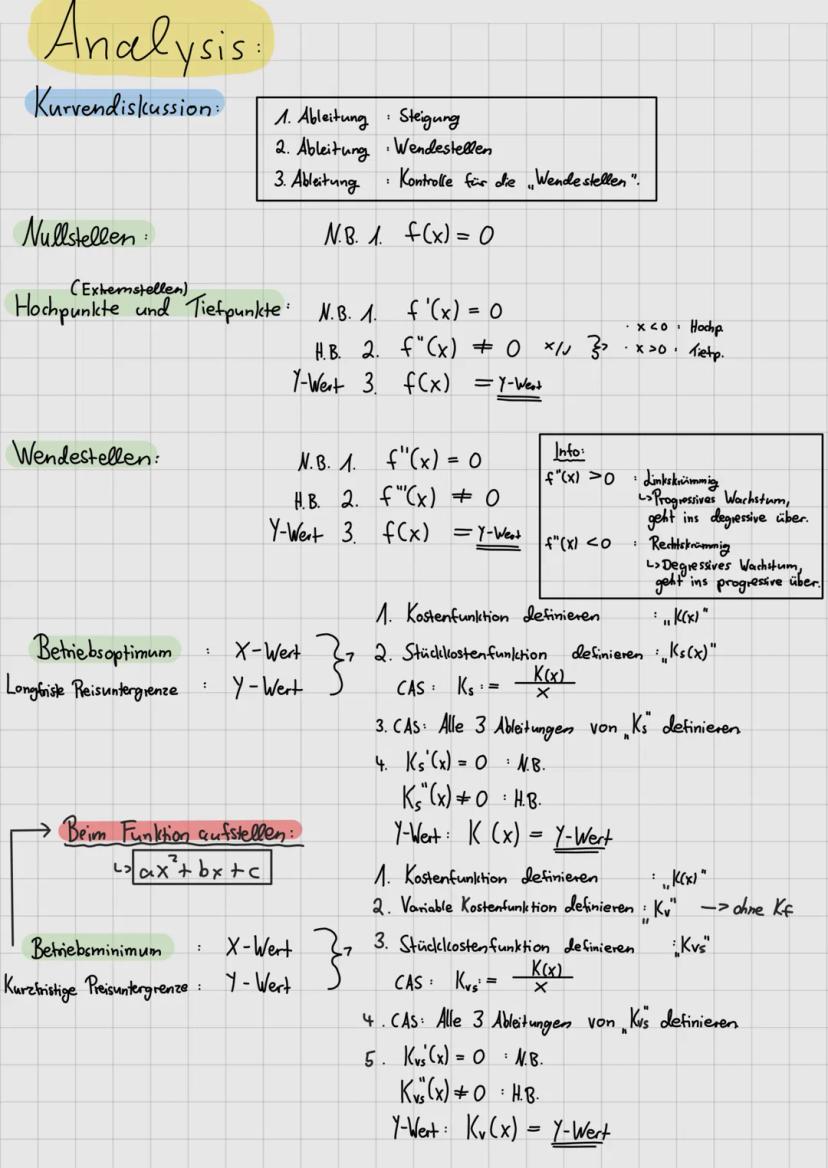 Analysis:
Kurvendiskussion:
1. Ableitung : Steigung
2. Ableitung : Wendestellen
3. Ableitung : Kontrolle für die „Wendestellen".
Nullstellen: N.B. 1. f(x) = 0
(Extremstellen)
Hochpunkte und Tiefpunkte: N.B. 1. f'(x) = 0
H.B. 2. f"(x) ≠ 0 · x<0 : Hochp.
· x>0 : Tiefp.
Y-Wert 3. f(x) = Y-Wert
Wendestellen: N.B. 1. f"(x) = 0
H.B. 2. f"'(x) ≠ 0
Y-Wert 3. f(x) = Y-Wert
Info:
f"(x) >0 : Linkskrümmig
↳Progressives Wachstum,
geht ins degressive über.
f"(x) <0 : Rechtskrümmig
↳Degressives Wachstum,
geht ins progressive über.
Betriebsoptimum : X-Wert
Longfriste Preisuntergrenze : Y-Wert
1. Kostenfunktion definieren : „K(x)"
2. Stückkostenfunktion definieren : „Ks(x)"
CAS : Ks := K(x)/x
3. CAS: Alle 3 Ableitungen von „Ks" definieren
4. Ks'(x) = 0 : N.B.
Ks"(x) ≠ 0 : H.B.
Y-Wert: K (x) = Y-Wert
Beim Funktion aufstellen:
↳ ax²+bx+c
Betriebsminimum : X-Wert
Kurzfristige Preisuntergrenze : Y-Wert
1. Kostenfunktion definieren : „K(x)"
2. Variable Kostenfunktion definieren : „Kv" —> ohne Kf
3. Stückkostenfunktion definieren : „Kvs"
CAS : Kvs := K(x)/x
4. CAS: Alle 3 Ableitungen von „Kvs" definieren
5. Kvs'(x) = 0 : N.B.
Kvs"(x) ≠ 0 : H.B.
Y-Wert: Kv(x) = Y-Wert